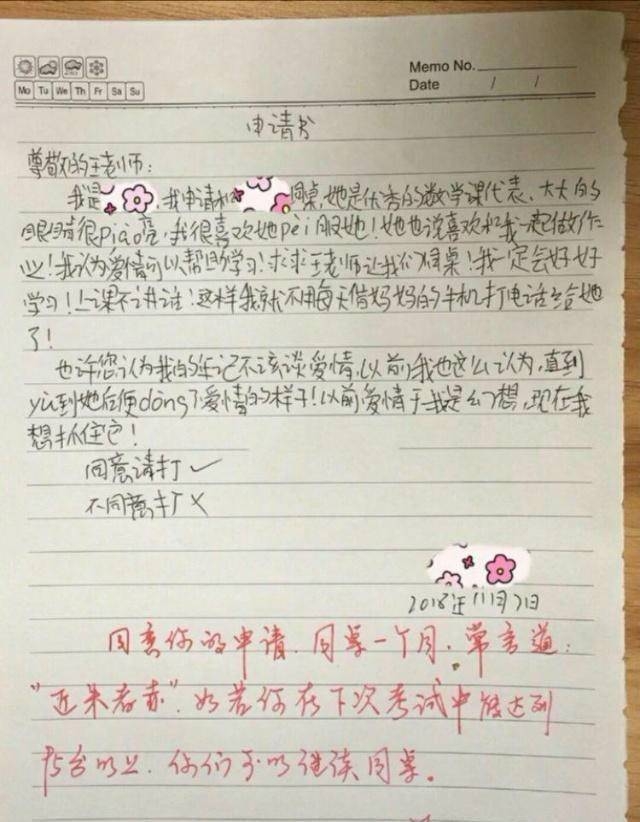 Memo No.
Date / /
Mo Tu We Th Fr Sa Su
申请书
尊敬的王老师：
我是，我申请和同桌，她是优秀的数学课代表、大大的
眼睛很piào亮，我很喜欢她pèi服她！她也说喜欢和我一起做作
业！我认为爱情可以帮助学习！求求王老师让我们同桌！我一定会好好
学习！上课不讲话！这样我就不用每天借妈妈的手机打电话给她
了！
也许您认为我的年记不该谈爱情，以前我也这么认为，直到
yù到她后便dǒng了爱情的样子！以前爱情于我是幻想，现在我
想抓住它！
同意请打✓
不同意打×
2018年11月7日
同意你的申请，同桌一个月，常言道：
"近朱者赤"，如若你在下次考试中能达到
95分以上，你们可以继续同桌。